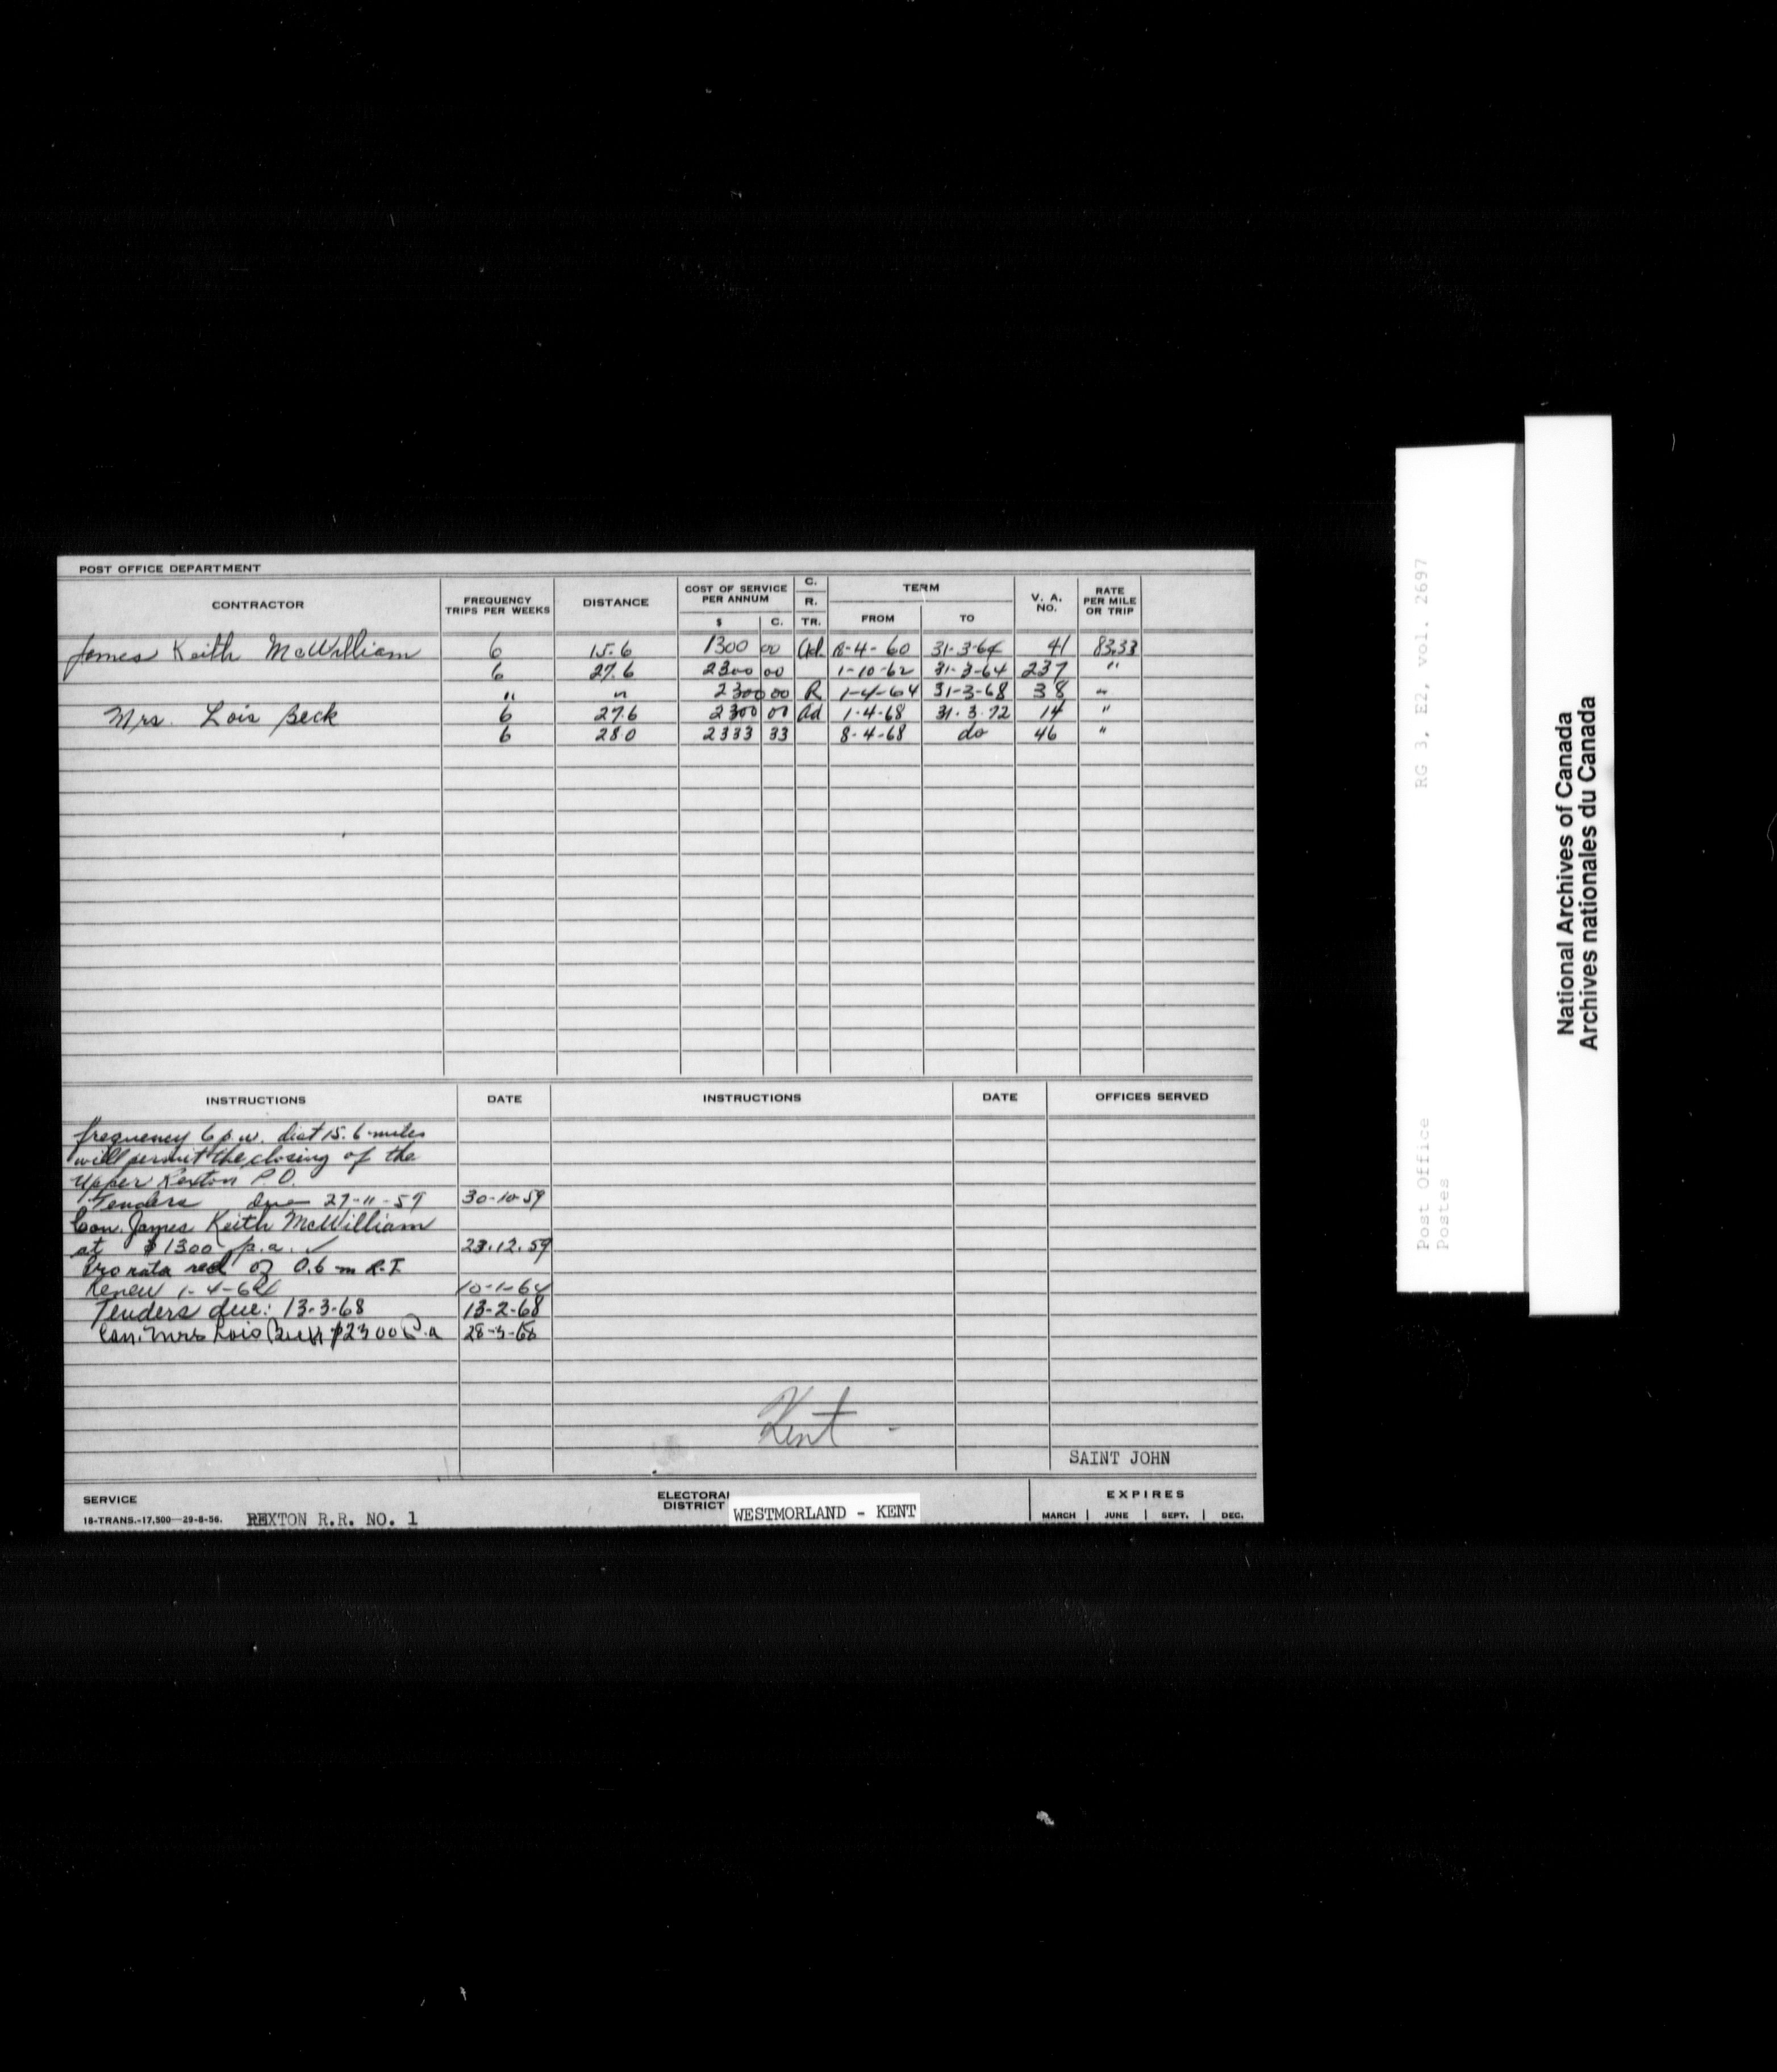 POST OFFICE DEPARTMENT
CONTRACTOR FREQUENCY TRIPS PER WEEKS DISTANCE COST OF SERVICE PER ANNUM $ C. C. R. TR. TERM FROM TO V. A. NO. RATE PER MILE OR TRIP
James Keith McWilliam 6 15.6 1300 00 Ad. 8-4-60 31-3-64 41 83.33
6 27.6 2300 00 1-10-62 31-3-64 237 "
" " 2300 00 R 1-4-64 31-3-68 38 "
Mrs. Lois Beck 6 27.6 2300 00 Ad 1-4-68 31.3.72 14 "
6 28.0 2333 33 8-4-68 do 46 "
INSTRUCTIONS DATE INSTRUCTIONS DATE OFFICES SERVED
frequency 6 p.w. dist 15.6 miles
will permit the closing of the
Upper Rexton P.O.
Tenders due 27-11-59 30-10-59
Con. James Keith McWilliam
at $1300 p.a. ✓ 23.12.59
Pro rata red of 0.6 m R.T.
Renew 1-4-64 10-1-64
Tenders due: 13-3-68 13-2-68
Con. Mrs Lois Beck $2300 P.a 28-3-68
Kent -
SAINT JOHN
SERVICE REXTON R.R. NO. 1
18-TRANS.-17,500—29-8-56.
ELECTORAL DISTRICT WESTMORLAND - KENT
EXPIRES
MARCH JUNE SEPT. DEC.
Post Office RG 3, E2, vol. 2697
Postes
National Archives of Canada
Archives nationales du Canada